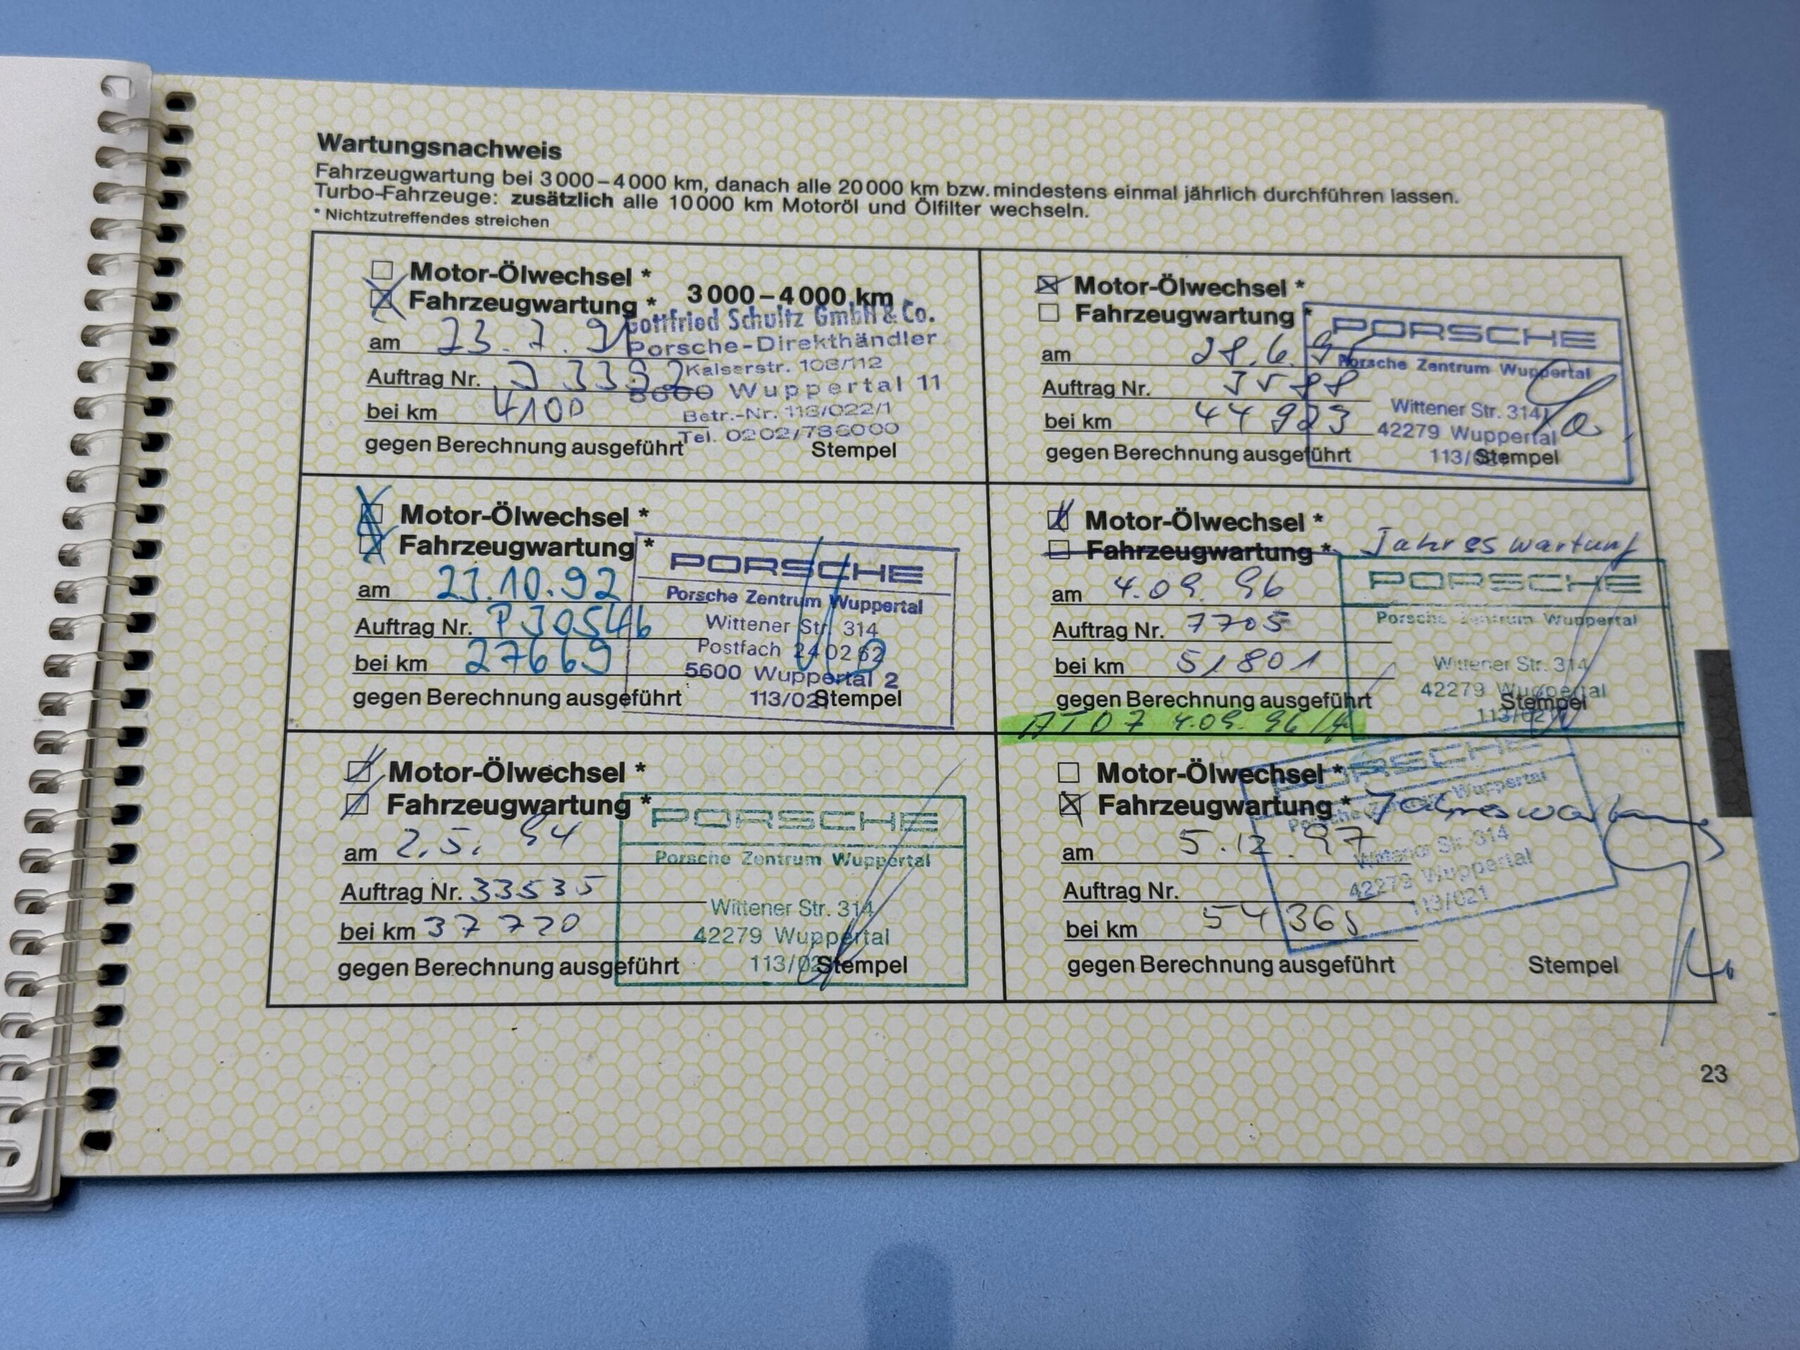 Wartungsnachweis
Fahrzeugwartung bei 3000–4000 km, danach alle 20000 km bzw. mindestens einmal jährlich durchführen lassen.
Turbo-Fahrzeuge: zusätzlich alle 10000 km Motoröl und Ölfilter wechseln.
* Nichtzutreffendes streichen
Motor-Ölwechsel *
Fahrzeugwartung * 3000–4000 km
am 23.7.91
Auftrag Nr.
bei km 4100
gegen Berechnung ausgeführt
Stempel
Gottfried Schultz GmbH & Co.
Porsche-Direkthändler
Kaiserstr. 108/112
5600 Wuppertal 11
Betr.-Nr. 113/022/1
Tel. 0202/736000
Motor-Ölwechsel *
Fahrzeugwartung *
am 23.10.92
Auftrag Nr.
bei km 27669
gegen Berechnung ausgeführt
Stempel
PORSCHE
Porsche Zentrum Wuppertal
Wittener Str. 314
Postfach 240262
5600 Wuppertal 2
113/021
Motor-Ölwechsel *
Fahrzeugwartung *
am 2.5.94
Auftrag Nr. 33535
bei km 37720
gegen Berechnung ausgeführt
Stempel
PORSCHE
Porsche Zentrum Wuppertal
Wittener Str. 314
42279 Wuppertal
113/021
Motor-Ölwechsel *
Fahrzeugwartung *
am 28.6.95
Auftrag Nr.
bei km 44923
gegen Berechnung ausgeführt
Stempel
PORSCHE
Porsche Zentrum Wuppertal
Wittener Str. 314
42279 Wuppertal
113/021
Motor-Ölwechsel *
Fahrzeugwartung * Jahreswartung
am 4.09.96
Auftrag Nr. 7705
bei km 51801
gegen Berechnung ausgeführt
Stempel
PORSCHE
Porsche Zentrum Wuppertal
Wittener Str. 314
42279 Wuppertal
113/021
4.09.96
Motor-Ölwechsel *
Fahrzeugwartung * Jahreswartung
am 5.12.97
Auftrag Nr.
bei km 54365
gegen Berechnung ausgeführt
Stempel
PORSCHE
Porsche Zentrum Wuppertal
Wittener Str. 314
42279 Wuppertal
113/021
23